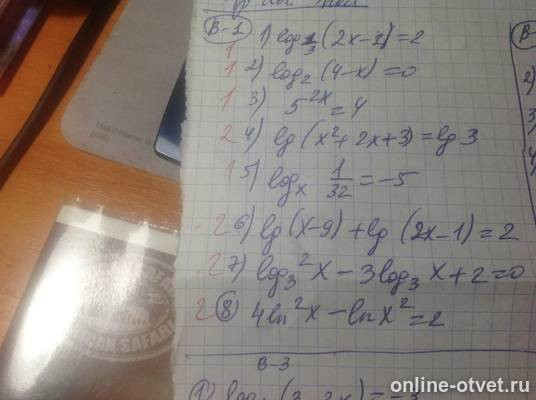 В-1
1 1) log_{1/3}(2x-1)=2
1 2) log₂(4-x)=0
1 3) 5^{2x}=4
2 4) lg(x²+2x+3)=lg3
1 5) log_x 1/32=-5
2 6) lg(x-9)+lg(2x-1)=2
2 7) log₃²x-3log₃x+2=0
2 8) 4ln²x-lnx²=2
В-3
1) log (3-2x)=-3
В-
2)
3)
4)
AFRICAN SAFARI
online-otvet.ru